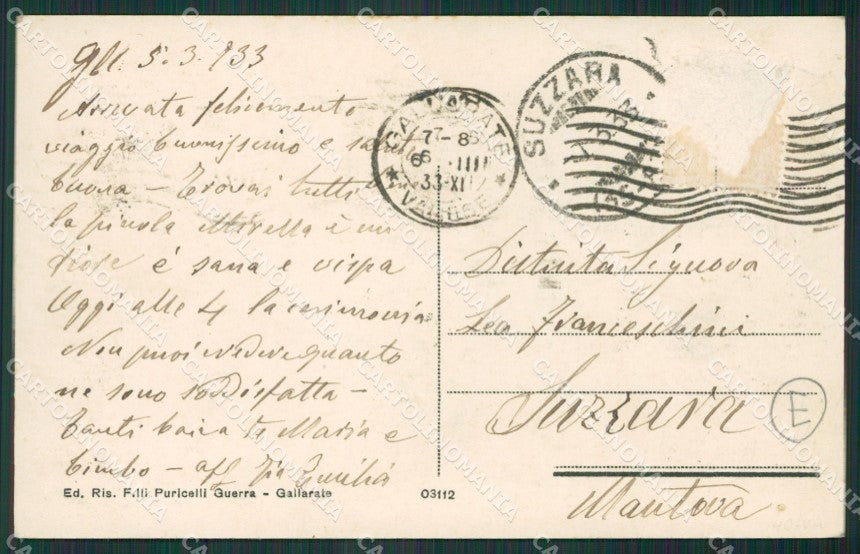 5.3.933
Arrivata felicemente
viaggio buonissimo e
buona - Trovai tutti
la piccola Mirella è un
fiore è sana e vispa
Oggi alle 4 la cerimonia
Non puoi vedere quanto
ne sono soddisfatta -
Tanti baci Maria e
bimbo - aff Zia Emilia
Ed. Ris. F.lli Puricelli Guerra - Gallarate
03112
GALLARATE
VARESE
7-8
33-XI
SUZZARA
Distinta Signora
Lea Franceschini
Suzzara
E
Mantova
CARTOLINOMANIA